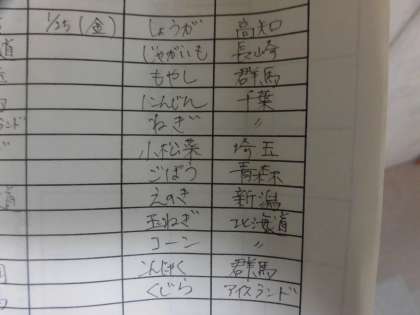 1/25(金) しょうが 高知
道 じゃがいも 長崎
もやし 群馬
にんじん 千葉
ランド ねぎ 〃
小松菜 埼玉
ごぼう 青森
道 えのき 新潟
玉ねぎ 北海道
コーン 〃
こんにゃく 群馬
くじら アイスランド